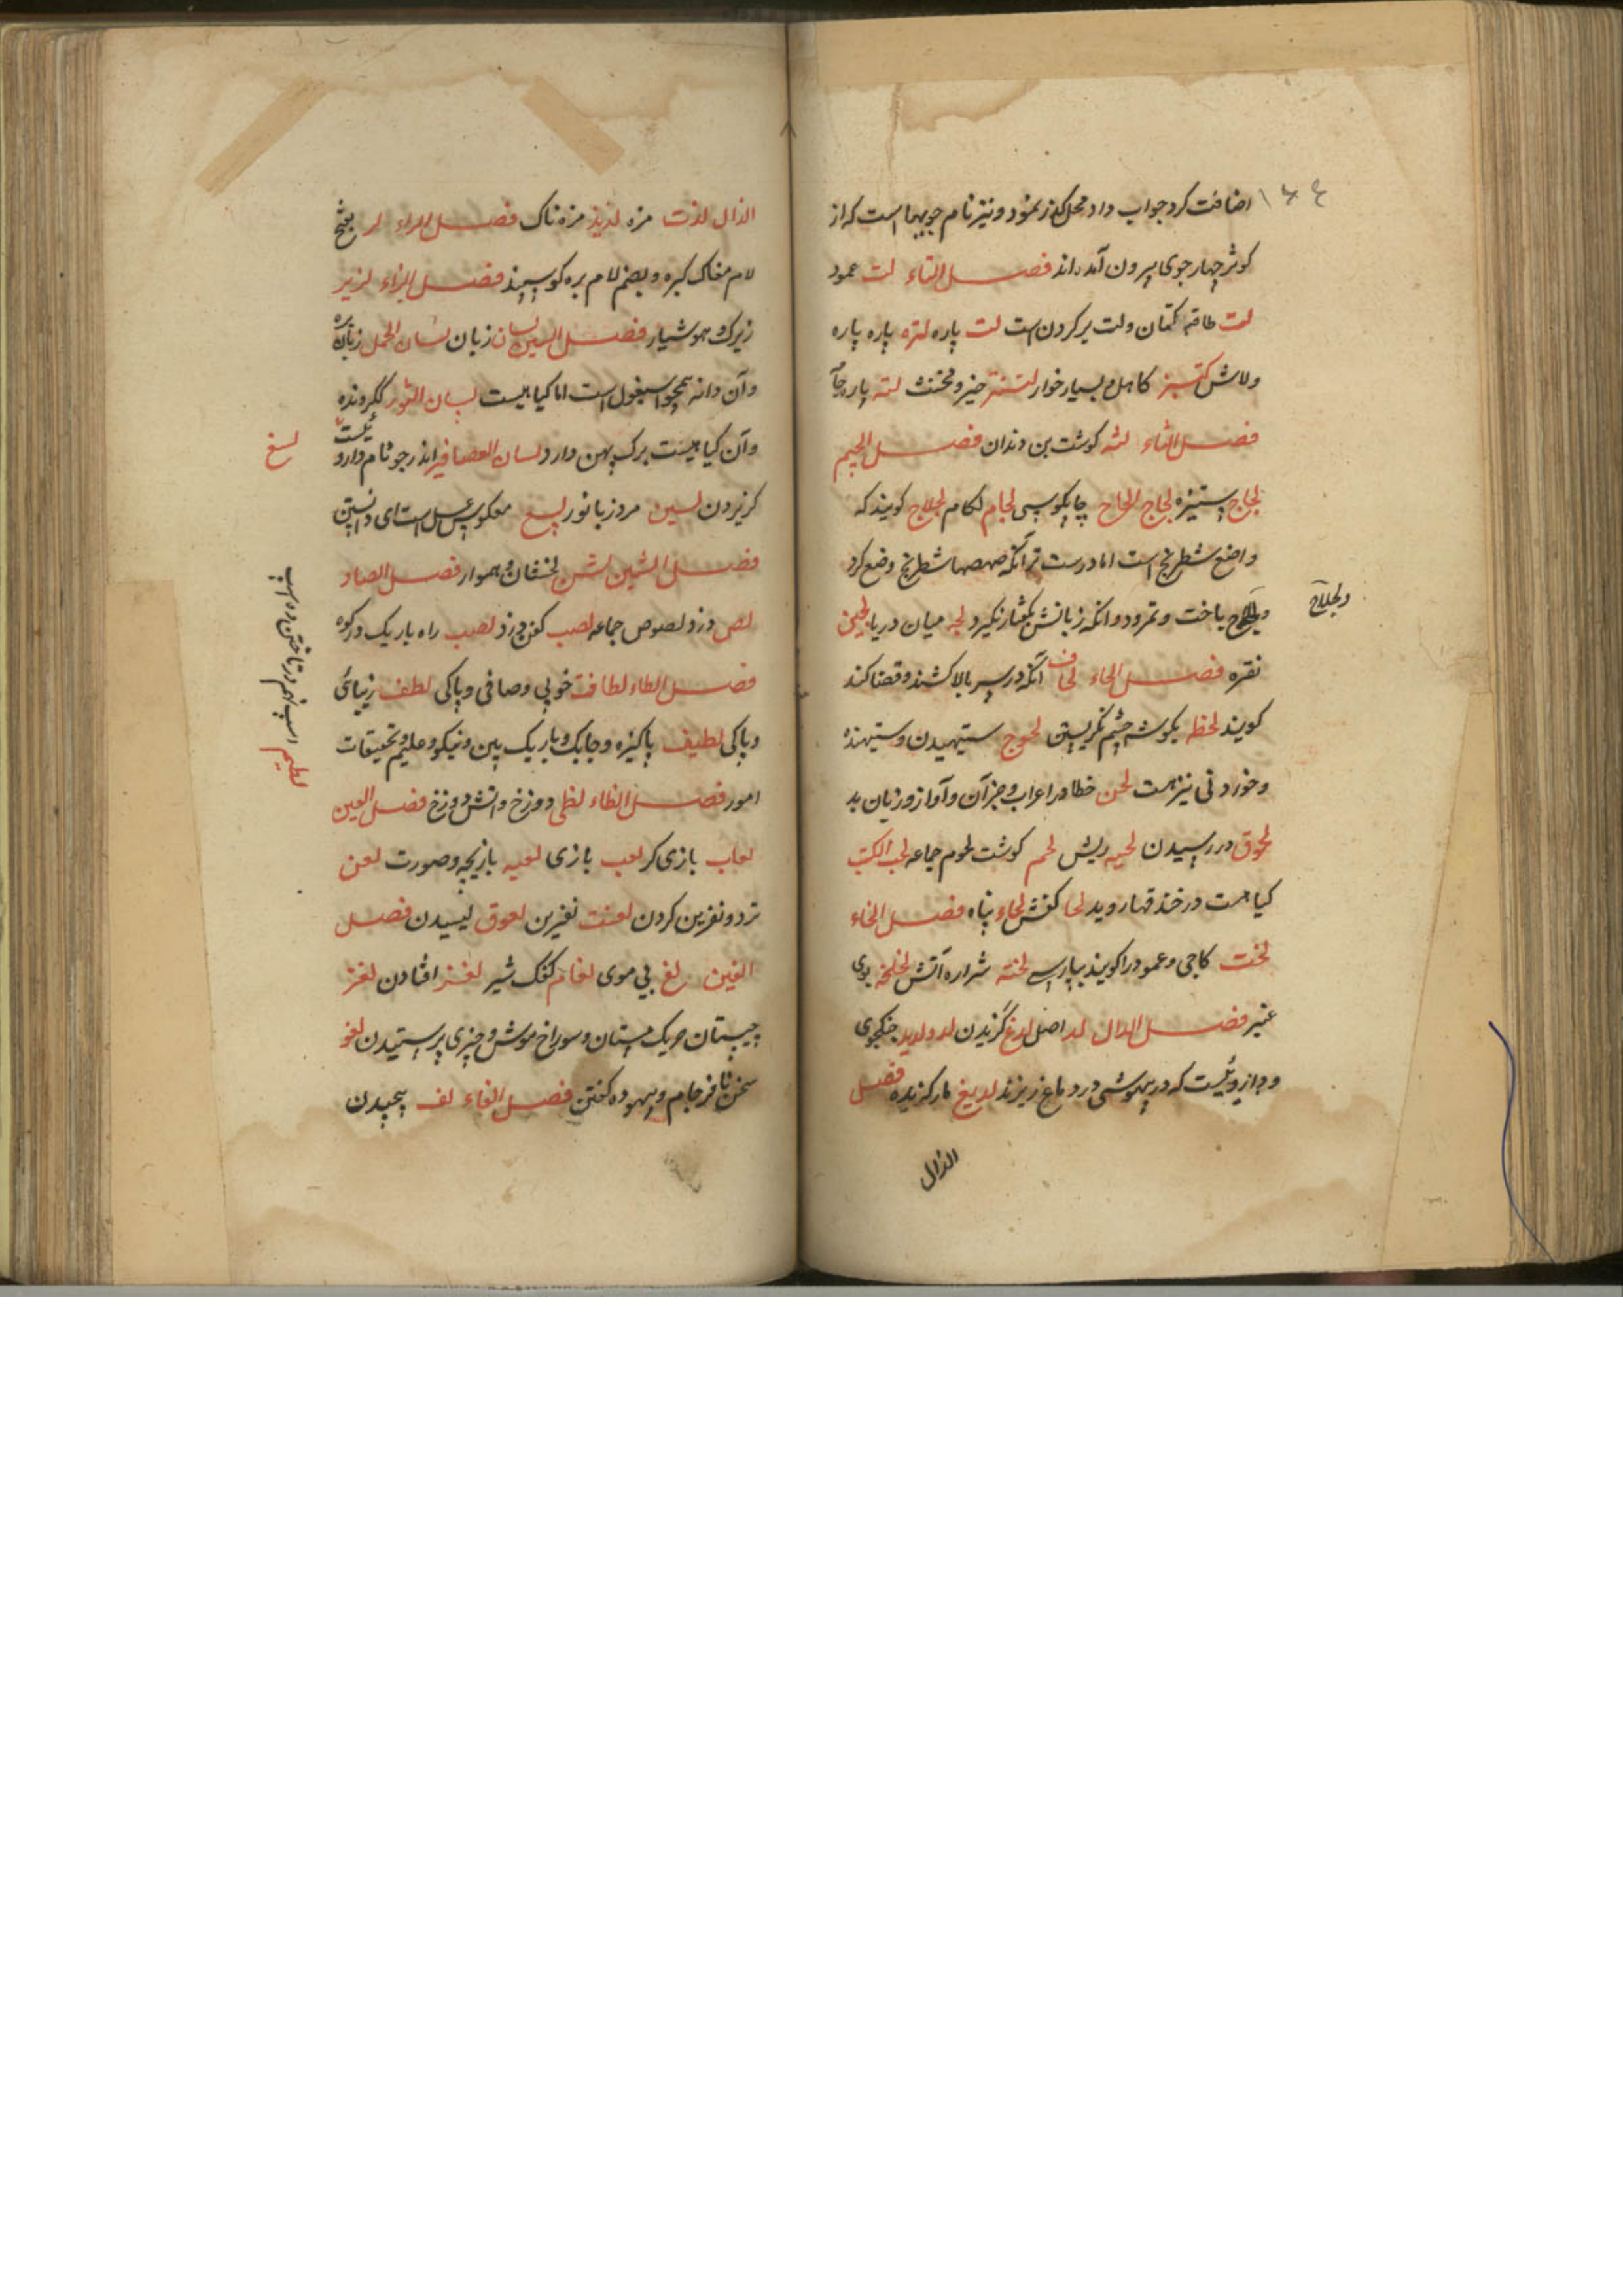 ۱۶۴
اضافت کرد جواب داد محل کذر نمود و نیز نام جویها است که از
کوثر چهار جوی بیرون آمده اند فصل التاء لت عمود
لت طاقه کتان ولت پر کردن است لت پاره لتره پاره پاره
ولاش کتبز کاهل و بسیار خوار لتنتر حیز و مخنث لته پارجه
فصل الثاء لثه کوشت بن دندان فصل الجیم
لجاج ستیزه لجاج الحاح چاپلوسی لجام لکام لجلاج کویند که
واضع شطرنج است اما درست تر آنکه صهصها شطرنج وضع کرد
ولجلاج باخت وتمرود وانکه زبانش بکفتار نکیرد لجه میان دریا لجین
ولجلاج
نقره فصل الحاء لحاف آنکه در سر بالا کشند و قضا کند
کویند لحظه بکوشه چشم نکریستن لحوج ستیهیدن وستیهنده
وخوردنی نیز هست لحن خطا در اعراب و جز آن وآواز و زبان بد
لحوق در رسیدن لحیه ریش لحم کوشت لحوم جماعه لحب الکتب
کیا هست درختها روید لحا کفش لحاء پناه فصل الخاء
لخت کاجی وعمود را کویند بپارسی لخته شراره آتش لخلخه بوی
عنبر فصل الدال لد اصل لدغ گزیدن لد ولدید جنکجوی
و داروئیست که در بیهوشی در دماغ ریزند لدیغ مار کزیده فصل
الذال
الذال لذت مزه لذیذ مزه ناک فصل الراء لر بفتح
لام مغاک کبره و بضم لام بره کوسپند فصل الزاء لزیر
زیرک و هوشیار فصل السین لسان زبان لسان الحمل زبان بره
وآن دانه همچو اسبغول است اما کیاهیست لسان الثور کلکرونده
وآن کیاهیست برک پهن دارد لسان العصافیر اندرجو نام داروئیست
لسغ
کزیدن لسین مرد زبانور لسع معکوس عسل است ای دانستن
فصل الشین لشن لخشان و هموار فصل الصاد
لص دزد لصوص جماعه لصب کفن دزد لصیب راه باریک در کوه
فصل الطاء لطافت خوبی وصافی وپاکی لطف زیبائی
وپاکی لطیف پاکیزه وچابک و باریک بین و نیکو و علیم تحقیقات
لطیم اسب نهم در تاختن ده اسب
امور فصل الظاء لظی دوزخ واتش دوزخ فصل العین
لعاب بازی کر لعب بازی لعبه بازیچه وصورت لعن
ترد ونفرین کردن لعنت نفرین لعوق لیسیدن فصل
الغین لغ بی موی لغام کفک شیر لغز افتادن لغز
چیستان و ریکستان وسوراخ موش و چیزی پرستیدن لغو
سخن نافرجام وبیهوده کفتن فصل الفاء لف پیچیدن